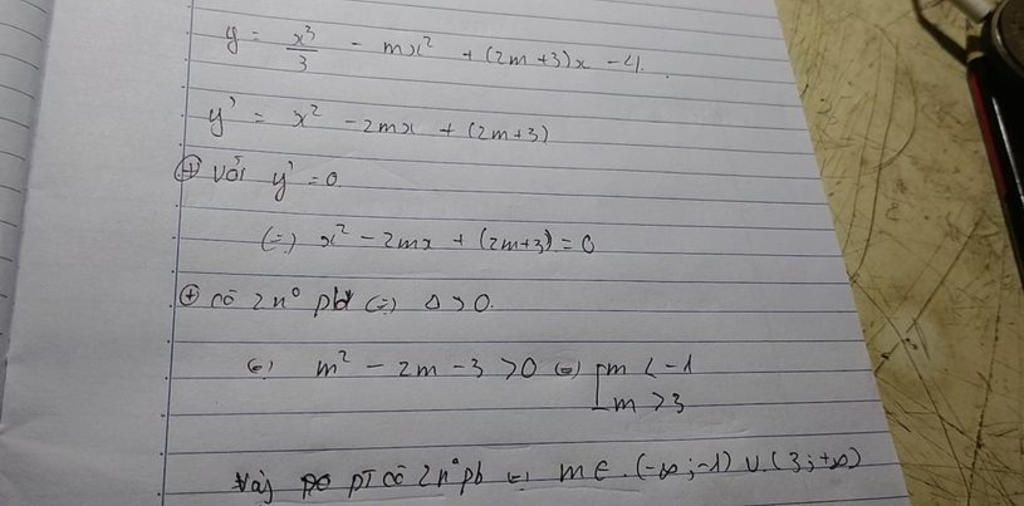 y = x³/3 - mx² + (2m+3)x - 4.
y' = x² - 2mx + (2m+3)
⊕ với y' = 0.
(=) x² - 2mx + (2m+3) = 0
⊕ có 2n° pb (=) Δ > 0.
(=) m² - 2m - 3 > 0 (=) [m < -1
m > 3
Vậy PT có 2n° pb (=) m ∈ (-∞; -1) ∪ (3; +∞)